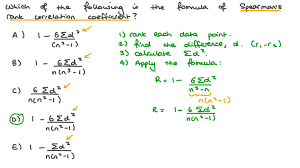 Which of the following is the formula of Spearmans
rank correlation coefficient?
A) 1 - 6Σd² / (n²-1)
B) 1 - 6Σd² / n(n²-1)
C) 6Σd² / n(n²-1)
D) 1 - 6Σd² / n(n²-1)
E) 1 - Σd² / n(n²-1)
1) rank each data point.
2) find the difference, d. (r₁-r₂)
3) calculate Σd².
4) Apply the formula:
R = 1 - 6Σd² / n³-n
n(n²-1)
R = 1 - 6Σd² / n(n²-1)